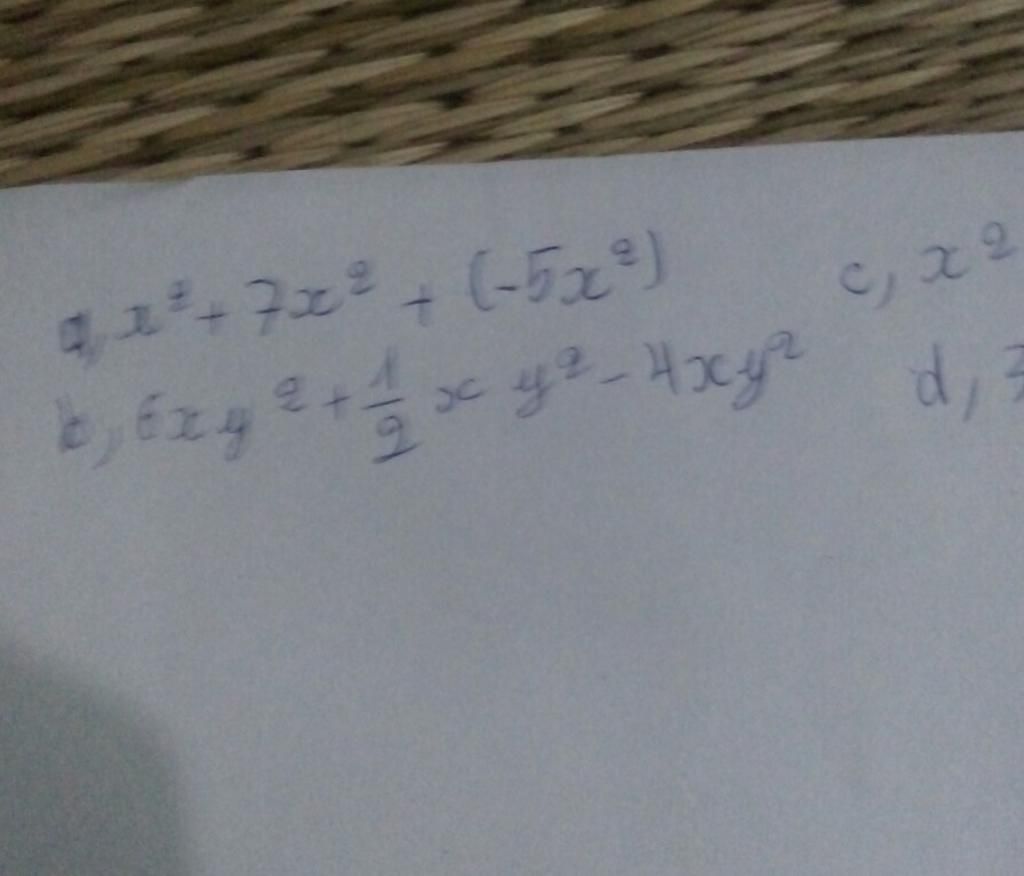 a, x² + 7x² + (-5x²) c, x²
b, 6xy² + 1/2 xy² - 4xy² d, 3